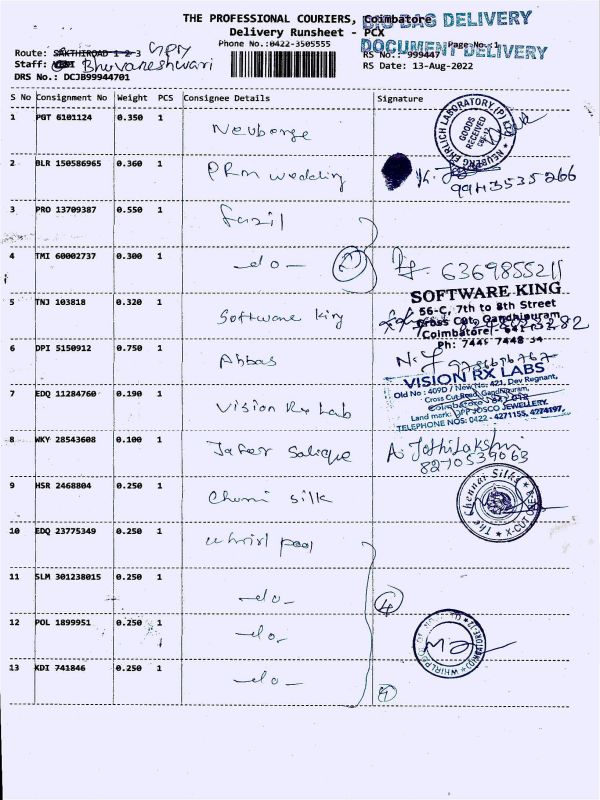 THE PROFESSIONAL COURIERS, Coimbatore
BIG BAG DELIVERY
Delivery Runsheet - PCX
DOCUMENT DELIVERY
Phone No.:0422-3505555
Page No.:1
Route: SAKTHIROAD 1 2 3
RS No.: 999447
Staff: Bhuvaneshwari
RS Date: 13-Aug-2022
DRS No.: DCJB99944701
S No Consignment No Weight PCS Consignee Details Signature
1 PGT 6101124 0.350 1 Neuberge
NEUBERG EHRLICH LABORATORY (P) GOODS RECEIVED
2 BLR 150586965 0.360 1 PRM wedding
9943535266
3 PRO 13709387 0.550 1 fazil
4 TMI 60002737 0.300 1 -do- 2 6369855211
5 TNJ 103818 0.320 1 Software king
SOFTWARE KING
56-C, 7th to 8th Street
Cross Cut, Gandhipuram
Coimbatore
Ph: 7449 7448 34
6 DPI 5150912 0.750 1 Abbas
7 EDQ 11284760 0.190 1 Vision Rx Lab
VISION RX LABS
Old No : 409D / New No: 421, Dev Regnant,
Cross Cut Road, Gandhipuram,
Coimbatore
Land mark: OPP JOSCO JEWELLERY.
TELEPHONE NOS: 0422 - 4271155, 4274197.
8 WKY 28543608 0.100 1 Jafer Salique A. Jothilakshmi
8270539063
9 HSR 2468804 0.250 1 Chenni silk
The Chennai Silks X-CUT
10 EDQ 23775349 0.250 1 whirl pool
11 SLM 301238015 0.250 1 -do- 4
12 POL 1899951 0.250 1 -do-
13 KDI 741846 0.250 1 -do-